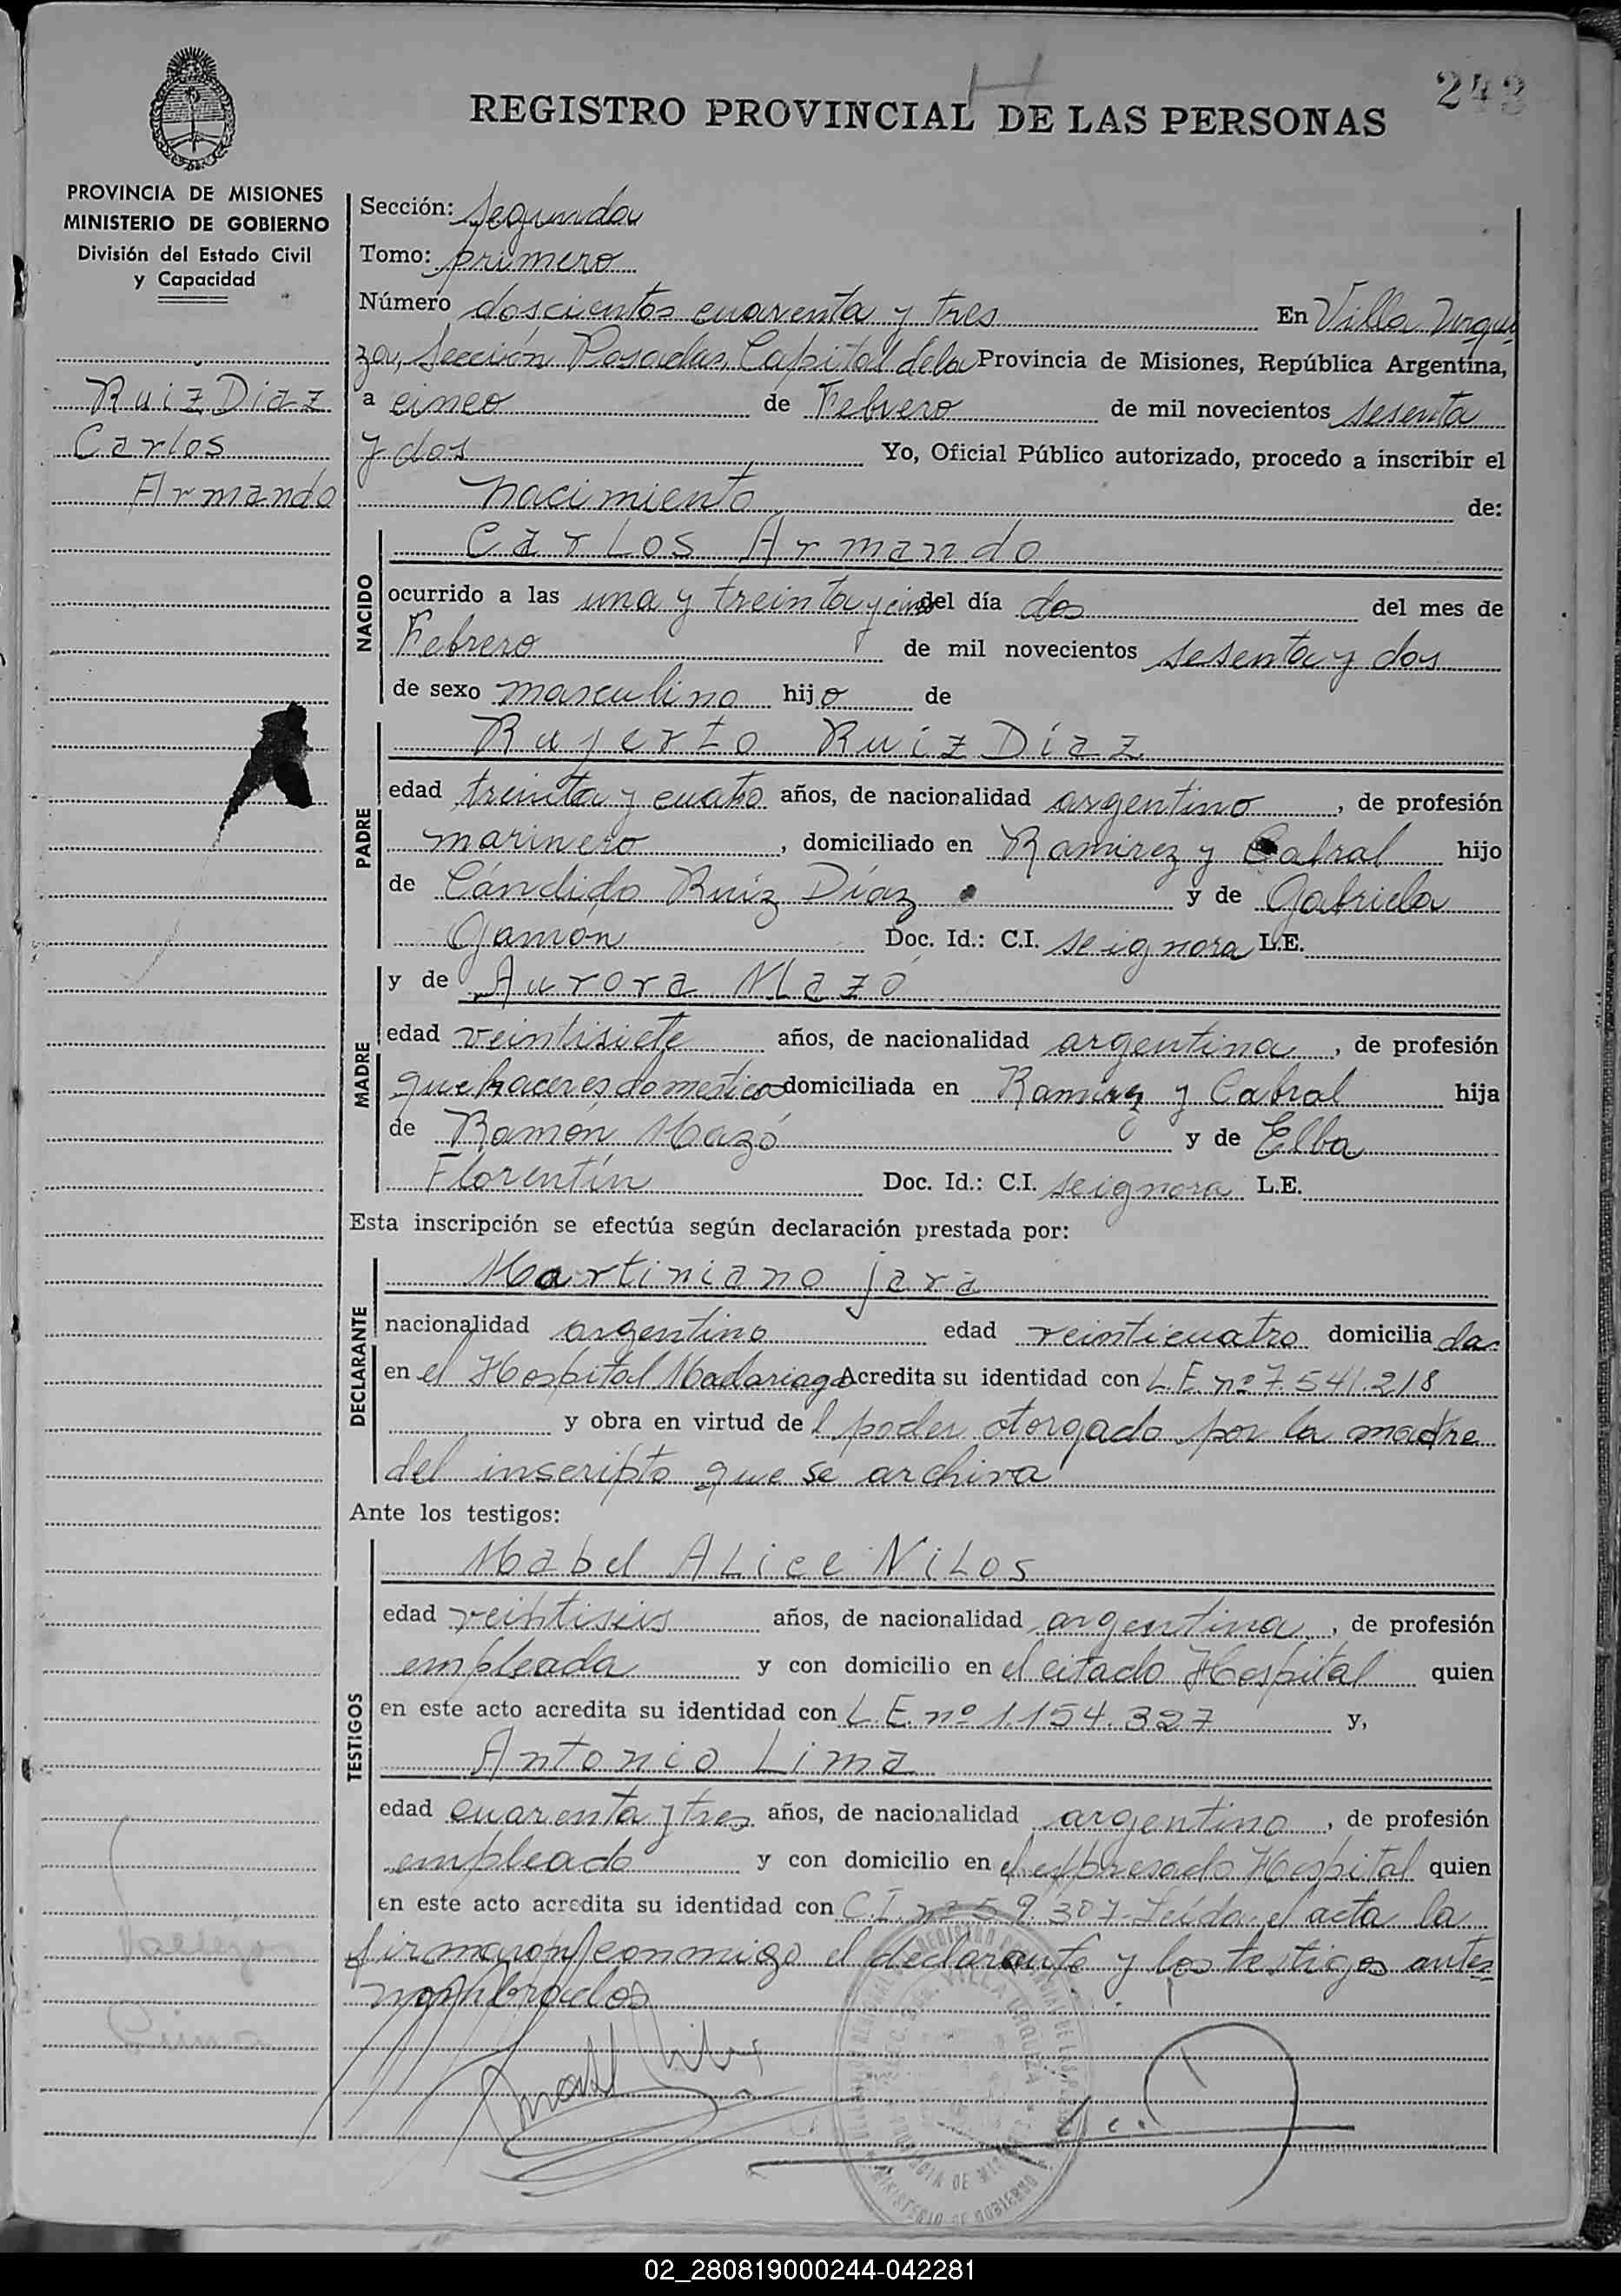 243
REGISTRO PROVINCIAL DE LAS PERSONAS
PROVINCIA DE MISIONES
MINISTERIO DE GOBIERNO
División del Estado Civil
y Capacidad
Ruiz Diaz
Carlos
Armando
Sección: Segunda
Tomo: primero
Número doscientos cuarenta y tres En Villa Urqui
za, Sección Posadas, Capital de la Provincia de Misiones, República Argentina,
a cinco de Febrero de mil novecientos sesenta
y dos Yo, Oficial Público autorizado, procedo a inscribir el
nacimiento de:
NACIDO
Carlos Armando
ocurrido a las una y treinta y cinco del día dos del mes de
Febrero de mil novecientos sesenta y dos
de sexo masculino hijo de
PADRE
Ruperto Ruiz Díaz
edad treinta y cuatro años, de nacionalidad argentino, de profesión
marinero, domiciliado en Ramirez y Cabral hijo
de Cándido Ruiz Díaz y de Gabriela
Gamón Doc. Id.: C.I. se ignora L.E.
MADRE
y de Aurora Mazó
edad veintisiete años, de nacionalidad argentina, de profesión
quehaceres domesticos domiciliada en Ramirez y Cabral hija
de Ramón Mazó y de Elba
Florentín Doc. Id.: C.I. se ignora L.E.
Esta inscripción se efectúa según declaración prestada por:
DECLARANTE
Martiniano Jara
nacionalidad argentino edad veinticuatro domiciliada
en el Hospital Madariaga Acredita su identidad con L.E. nº 7.541.218
y obra en virtud del poder otorgado por la madre
del inscripto que se archiva
Ante los testigos:
TESTIGOS
Mabel Alice Nilos
edad veintiseis años, de nacionalidad argentina, de profesión
empleada y con domicilio en el citado Hospital quien
en este acto acredita su identidad con L.E. nº 1.154.327 y,
Antonio Lima
edad cuarenta y tres años, de nacionalidad argentino, de profesión
empleado y con domicilio en el expresado Hospital quien
en este acto acredita su identidad con C.I. nº 59.307- Leída el acta la
firmaron conmigo el declarante y los testigos antes
nombrados
VILLA URQUIZA
MINISTERIO DE GOBIERNO
02_280819000244-042281